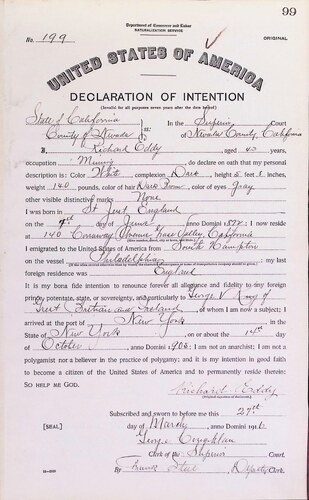 99
Department of Commerce and Labor
NATURALIZATION SERVICE
No. 199 ORIGINAL
UNITED STATES OF AMERICA
DECLARATION OF INTENTION
(Invalid for all purposes seven years after the date hereof)
State of California
County of Nevada ss: In the Superior Court
of Nevada County, California
I, Richard Eddy, aged 43 years,
occupation Mining, do declare on oath that my personal
description is: Color White, complexion Dark, height 5 feet 1 inches,
weight 140 pounds, color of hair Dark Brown, color of eyes Gray
other visible distinctive marks None
I was born in St Just England
on the day of June, anno Domini; I now reside
at 140 Conaway Avenue Grass Valley, California
I emigrated to the United States of America from South Hampton
on the vessel Philadelphia; my last
foreign residence was England
It is my bona fide intention to renounce forever all allegiance and fidelity to any foreign
prince, potentate, state, or sovereignty, and particularly to George V King of
Great Britain and Ireland, of whom I am now a subject; I
arrived at the port of New York, in the
State of New York, on or about the day
of October, anno Domini 1902; I am not an anarchist; I am not a
polygamist nor a believer in the practice of polygamy; and it is my intention in good faith
to become a citizen of the United States of America and to permanently reside therein:
SO HELP ME GOD.
Richard Eddy
Subscribed and sworn to before me this 27th
[SEAL] day of March, anno Domini 191
George
Clerk of the Superior Court.
By Frank Steel, Deputy Clerk.